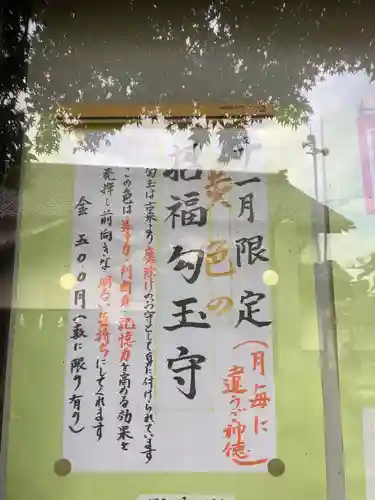 十一月限定
(月毎に
違うご神徳)
黄色の
招福勾玉守
勾玉は古来より魔除けのお守として身に付けられています
この色は集中力・判断力・記憶力を高める効果を
発揮し前向きな明るい気持ちにしてくれます
金 五〇〇円(数に限り有り)